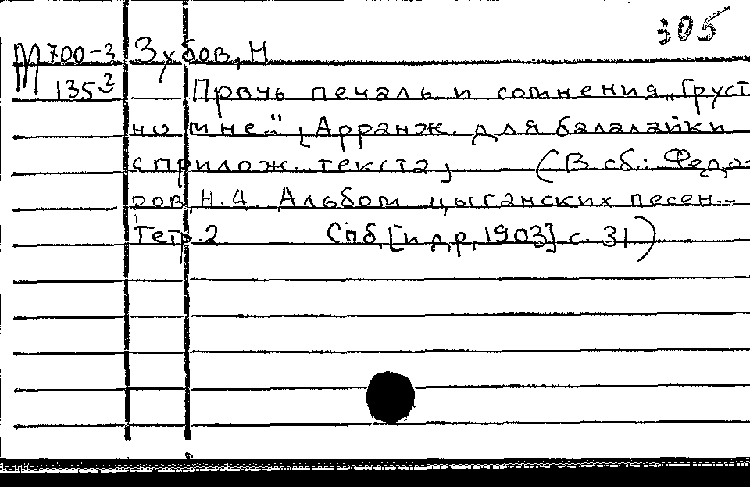 305
М 700-3 Зубов, Н
135² Прочь печаль и сомнения „Груст
но мне". [Арранж. для балалайки
с прилож. текста] (В сб.: Федо-
ров, Н.И. Альбом цыганских песен.-
Тетр. 2 Спб, [и др, 1903] с. 31)